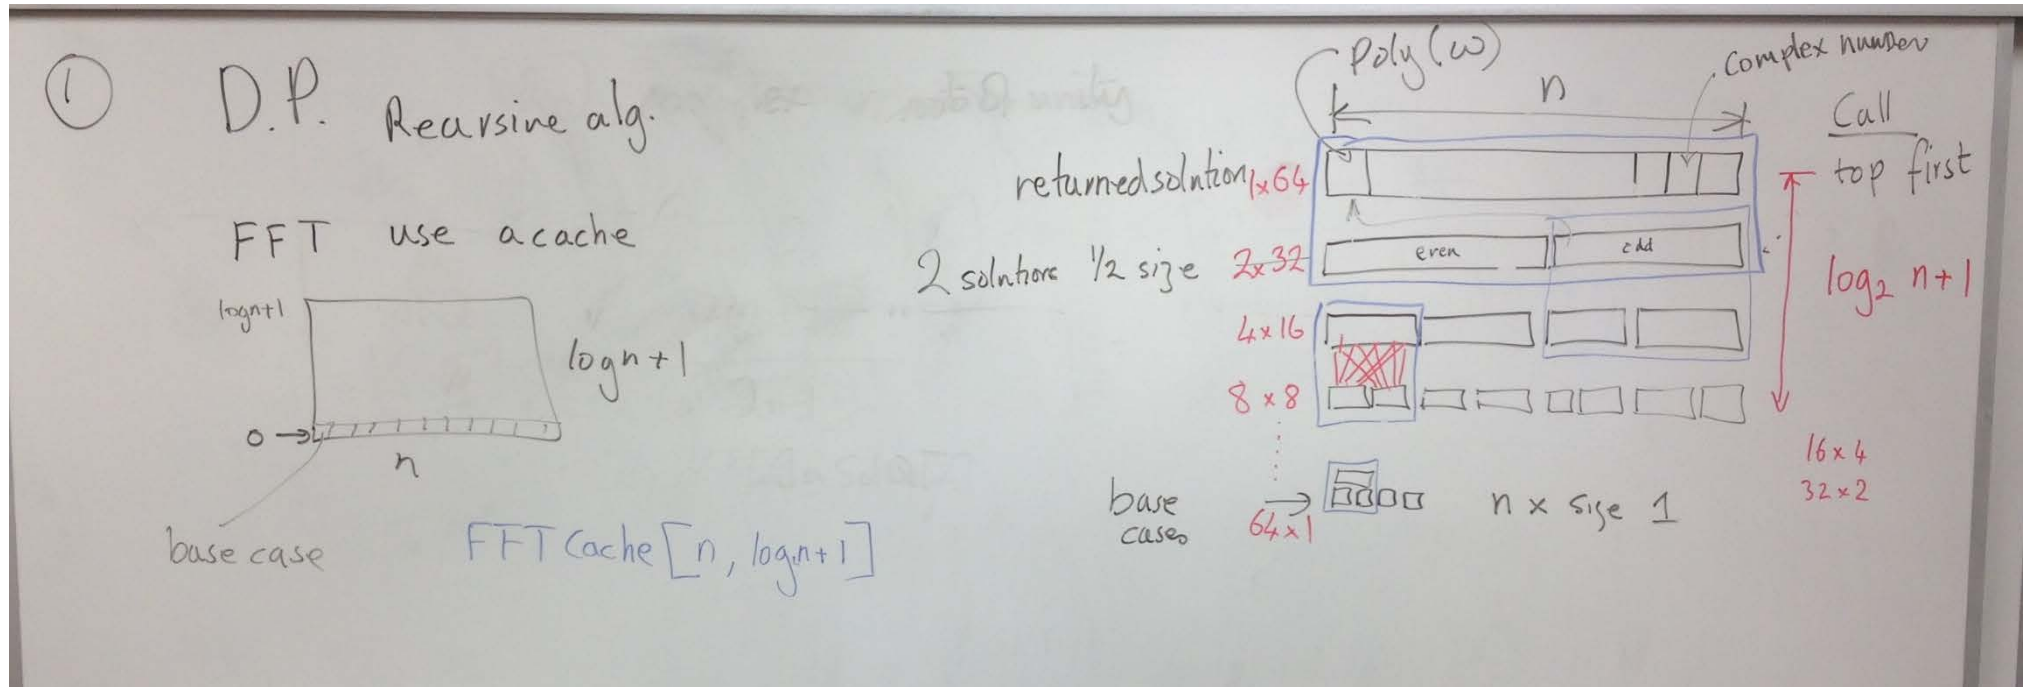 ①
D.P. Recursive alg.
FFT use a cache
logn+1
logn+1
0 →
n
base case
FFTCache[n, logn+1]
Poly(ω)
complex number
n
Call
top first
returned solution 1×64
2 solutions 1/2 size 2×32
even
odd
log₂ n+1
4×16
8×8
16×4
32×2
base
cases
64×1
n × size 1